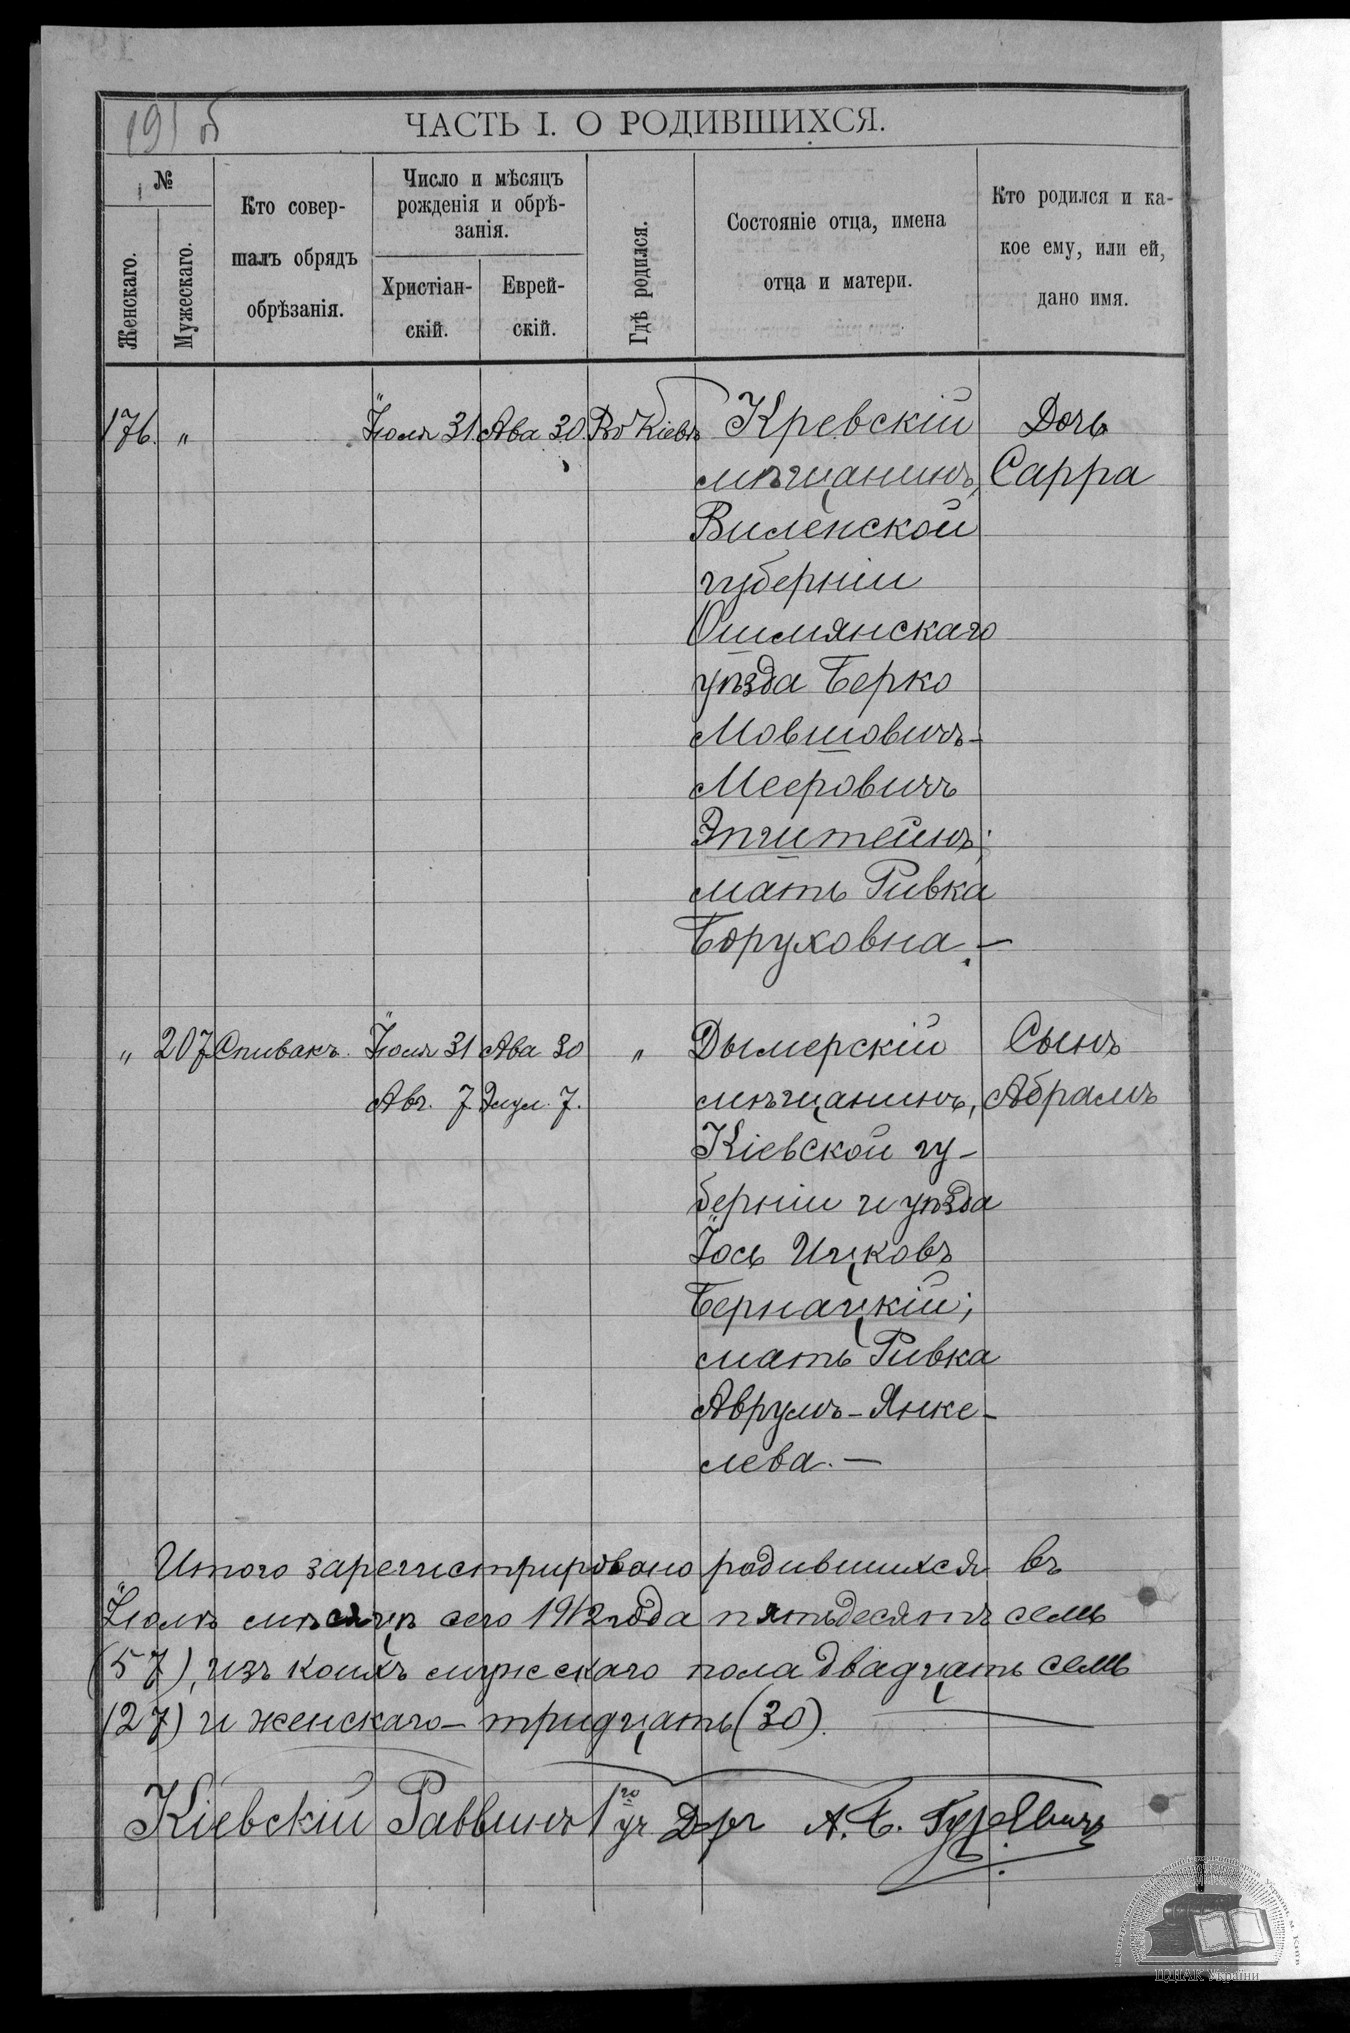 191 б
ЧАСТЬ I. О РОДИВШИХСЯ.
№
Женскаго.
Мужескаго.
Кто совер-
шалъ обрядъ
обрѣзанія.
Число и мѣсяцъ
рожденія и обрѣ-
занія.
Христіан-
скій.
Еврей-
скій.
Гдѣ родился.
Состояніе отца, имена
отца и матери.
Кто родился и ка-
кое ему, или ей,
дано имя.
176. " Іюля 31 Ава 30 Въ Кіевѣ Кревскій Дочь
мѣщанинъ, Сарра
Виленской
губерніи
Ошмянскаго
уѣзда Берко
Мовшовичъ-
Мееровичъ
Эпштейнъ;
мать Ривка
Боруховна.—
" 207 Спивакъ. Іюля 31 Ава 30 " Дымерскій Сынъ
Авг. 7. Элул. 7. мѣщанинъ, Абрамъ
Кіевской гу-
берніи и уѣзда
Іось Ицковъ
Бернацкій;
мать Ривка
Аврумъ-Янке-
лева.—
Итого зарегистрировано родившихся въ
Іюлѣ мѣсяцѣ сего 1912 года пятьдесятъ семь
(57), изъ коихъ мужскаго пола двадцать семь
(27) и женскаго- тридцать (30).
Кіевскій Раввинъ А. Б. Гуревичъ
ЦДІАК України